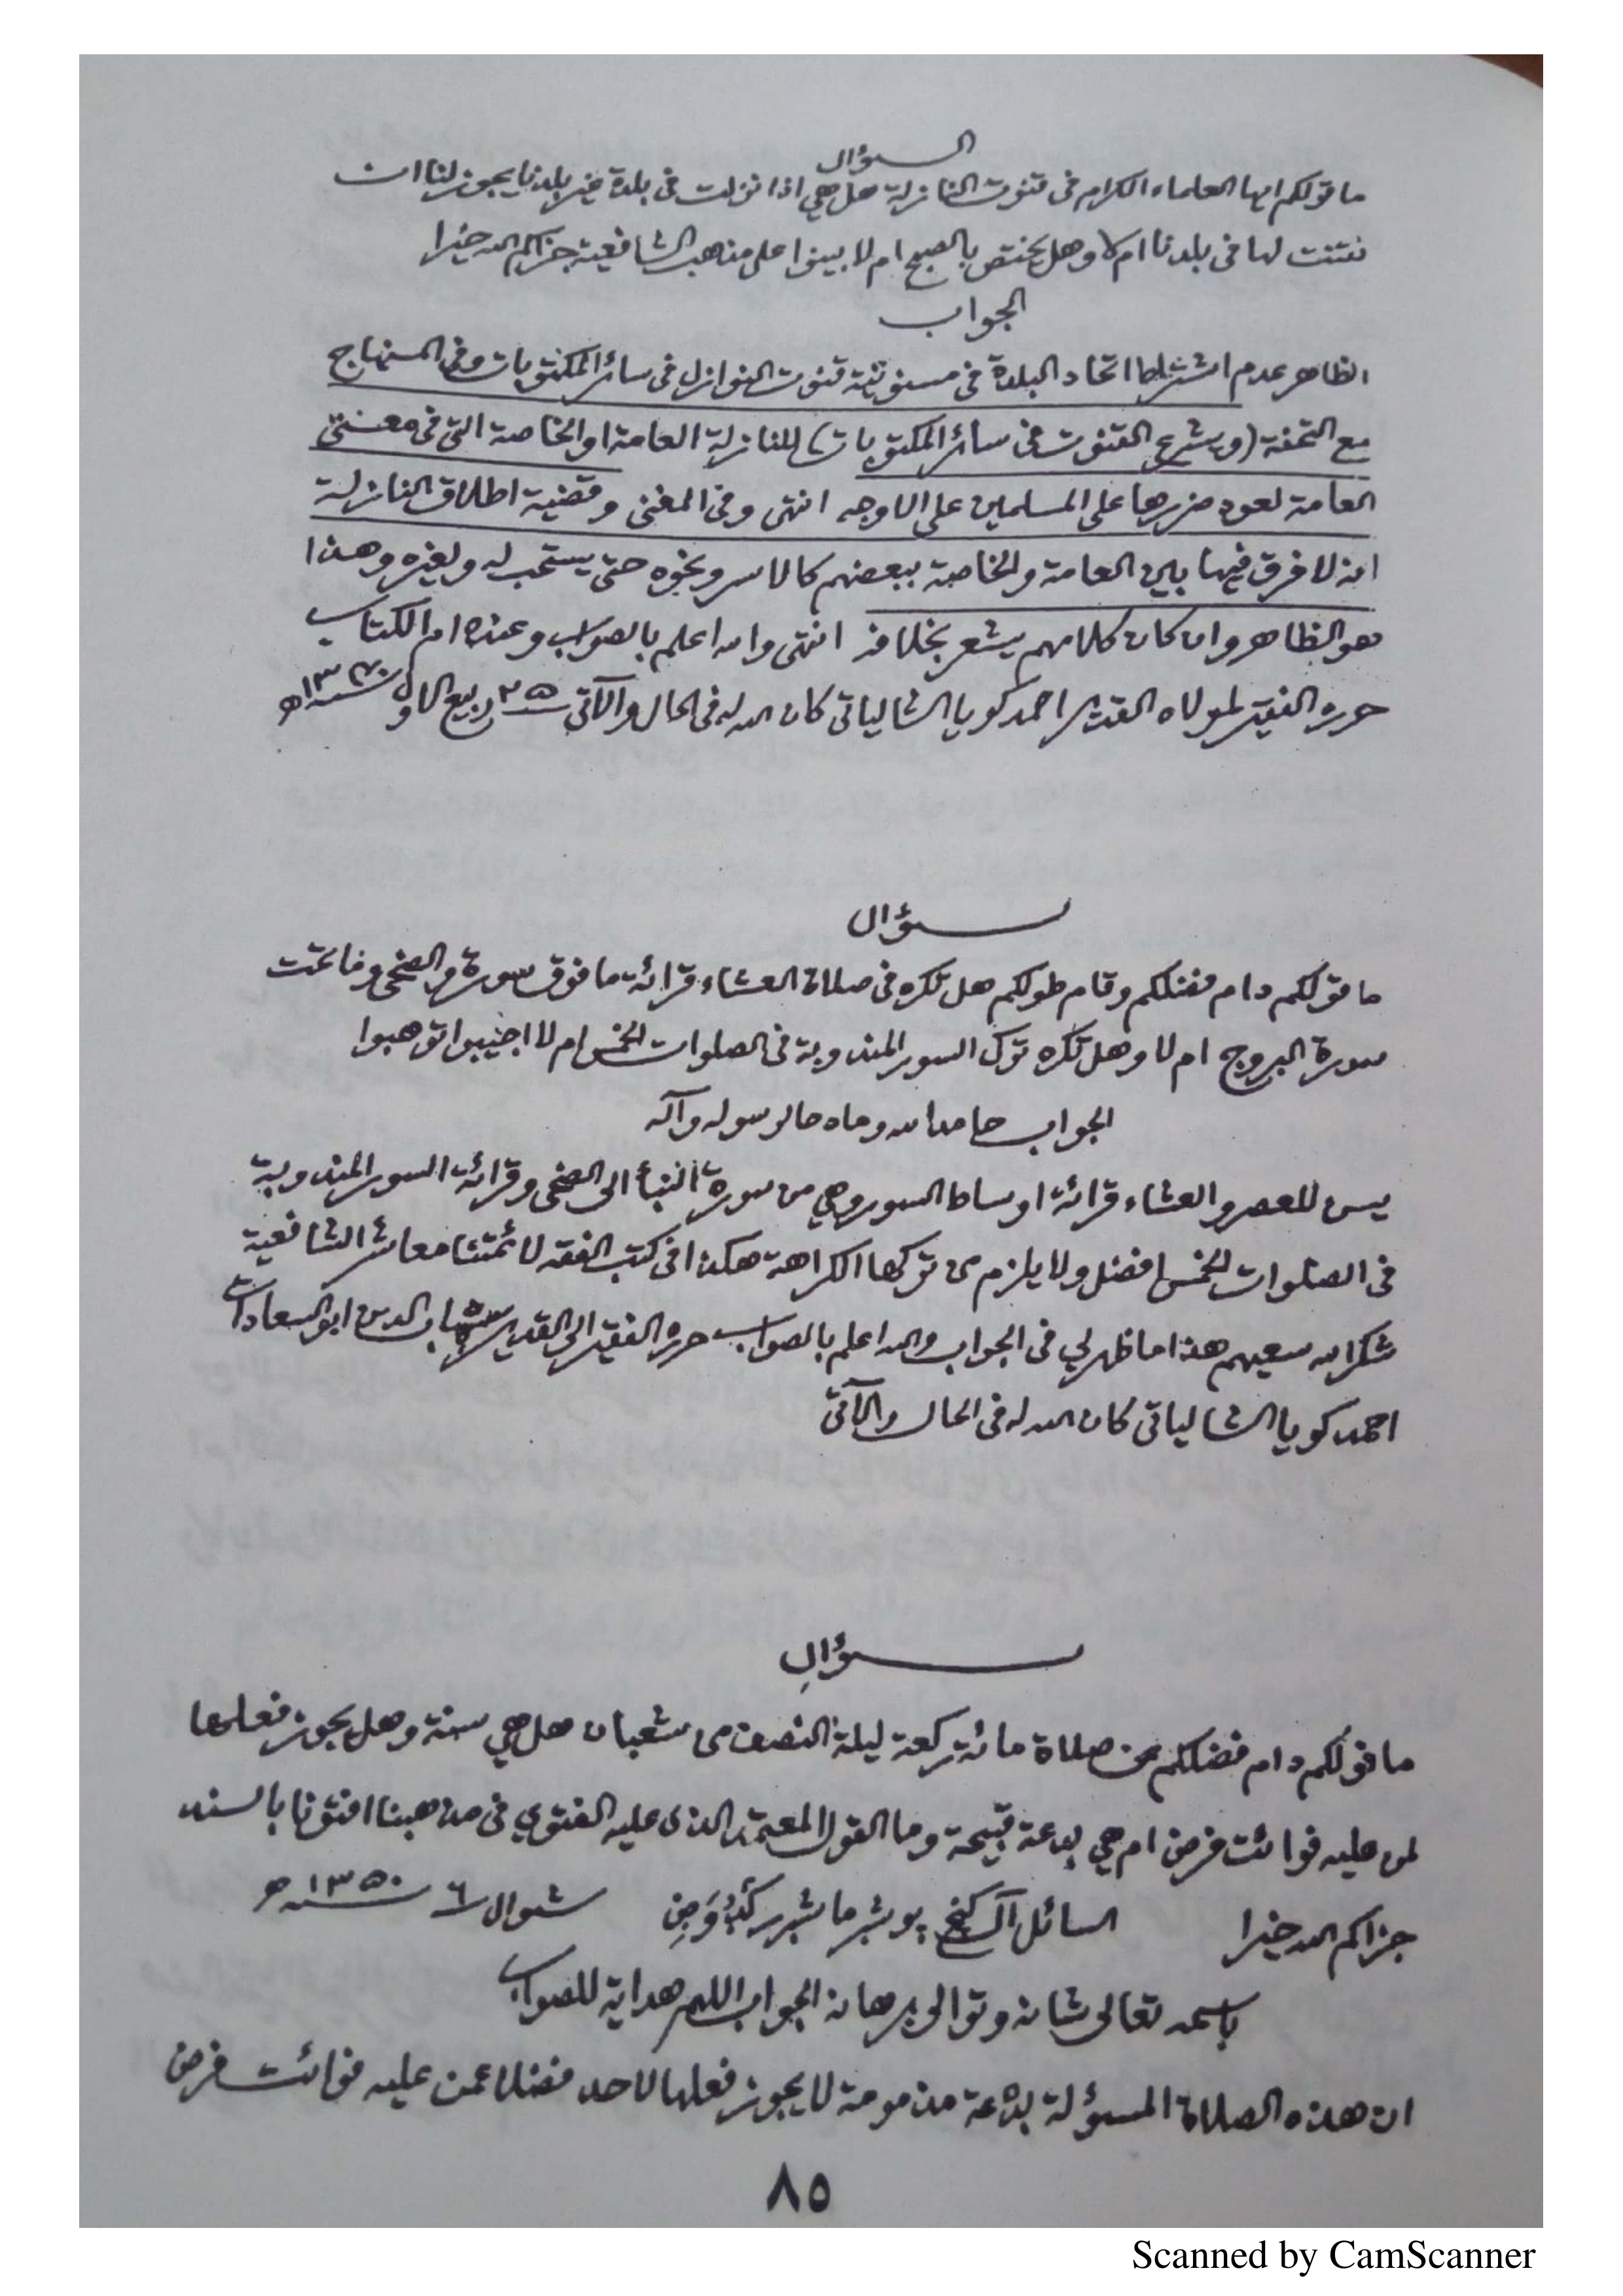 السؤال
ما قولكم ايها العلماء الكرام فى قنوت النازلة هل هي اذا نزلت فى بلدة غير بلدنا يجوز لنا ان
نقنت لها فى بلدنا ام لا وهل يختص بالصبح ام لا بينوا على مذهب الشافعية جزاكم الله خيرا
الجواب
الظاهر عدم اشتراط اتحاد البلدة فى مسنونية قنوت النوازل فى سائر المكتوبات وفى المنهاج
مع التحفة (ويشرع القنوت فى سائر المكتوبات) للنازلة العامة او الخاصة التى فى معنى
العامة لعود ضررها على المسلمين على الاوجه انتهى وفى المغنى وقضية اطلاق النازلة
انه لا فرق فيها بين العامة والخاصة ببعضهم كالاسر ونحوه حتى يستحب له ولغيره وهذا
هو الظاهر وان كان كلامهم يشعر بخلافه انتهى والله اعلم بالصواب وعنده ام الكتاب
حرره الفقير لمولاه القدير احمد كويا الشالياتى كان الله له فى الحال والآتى ٢٥ ربيع الاول سنة هـ
سؤال
ما قولكم دام فضلكم وقام طولكم هل تكره فى صلاة العشاء قرائة ما فوق سورة والضحى وما تحت
سورة البروج ام لا وهل تكره ترك السور المندوبة فى الصلوات الخمس ام لا اجيبوا توهبوا
الجواب حامدا لله ومادحا لرسوله وآله
يسن للعصر والعشاء قرائة اوساط السور وهي من سورة النبأ الى الضحى وقرائة السور المندوبة
فى الصلوات الخمس افضل ولا يلزم من تركها الكراهة هكذا فى كتب الفقه لائمتنا معاشر الشافعية
شكر الله سعيهم هذا ما ظهر لي فى الجواب والله اعلم بالصواب حرره الفقير الى القدير شهاب الدين ابو السعادات
احمد كويا الشالياتى كان الله له فى الحال والآتى
سؤال
ما قولكم دام فضلكم عن صلاة مائة ركعة ليلة النصف من شعبان هل هي سنة وهل يجوز فعلها
لمن عليه فوائت فرض ام هي بدعة قبيحة وما القول المعتمد الذى عليه الفتوي فى مذهبنا افتونا بالسند
جزاكم الله خيرا السائل شوال ٦ سنة ١٣٥٠ هـ
باسمه تعالى شانه وتوالى برهانه الجواب اللهم هداية للصواب
ان هذه الصلاة المسؤلة بدعة مذمومة لا يجوز فعلها لاحد فضلا عمن عليه فوائت فرض
٨٥
Scanned by CamScanner